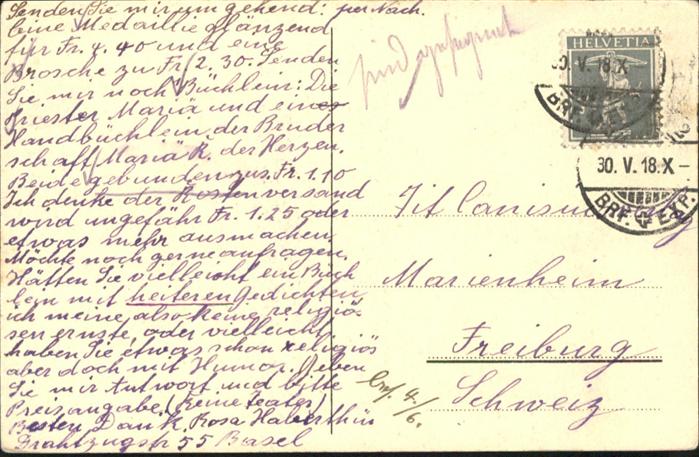 Senden Sie mir umgehend: per Nach.
Eine Medaillie glänzend
für Fr. 4.40 und eine
Brosche zu Fr. 2.30. Senden
Sie mir noch Büchlein: Die
Priester Mariä und eines
Handbüchlein der Bruder
schaft Mariä K. der Herzen.
Beide gebunden zus. Fr. 1.10
Ich denke der Kostenversand
wird ungefähr Fr. 1.25 oder
etwas mehr ausmachen.
Möchte noch gerne anfragen.
Hätten Sie vielleicht ein Büch
lein mit heiteren Gedichten,
ich meine, also keine religiö-
sen ernste, oder vielleicht
haben Sie etwas schon religiös
aber doch mit Humor. Geben
Sie mir Antwort und bitte
Preisangabe. (Keine teater)
Besten Dank. Rosa Haberthür
Drahtzugstr 55 Basel
HELVETIA
30. V. 18. X
BRF. EXP.
30. V. 18. X –
BRF. EXP.
Tit Canisius
Marienheim
Freiburg
Schweiz
4./6.